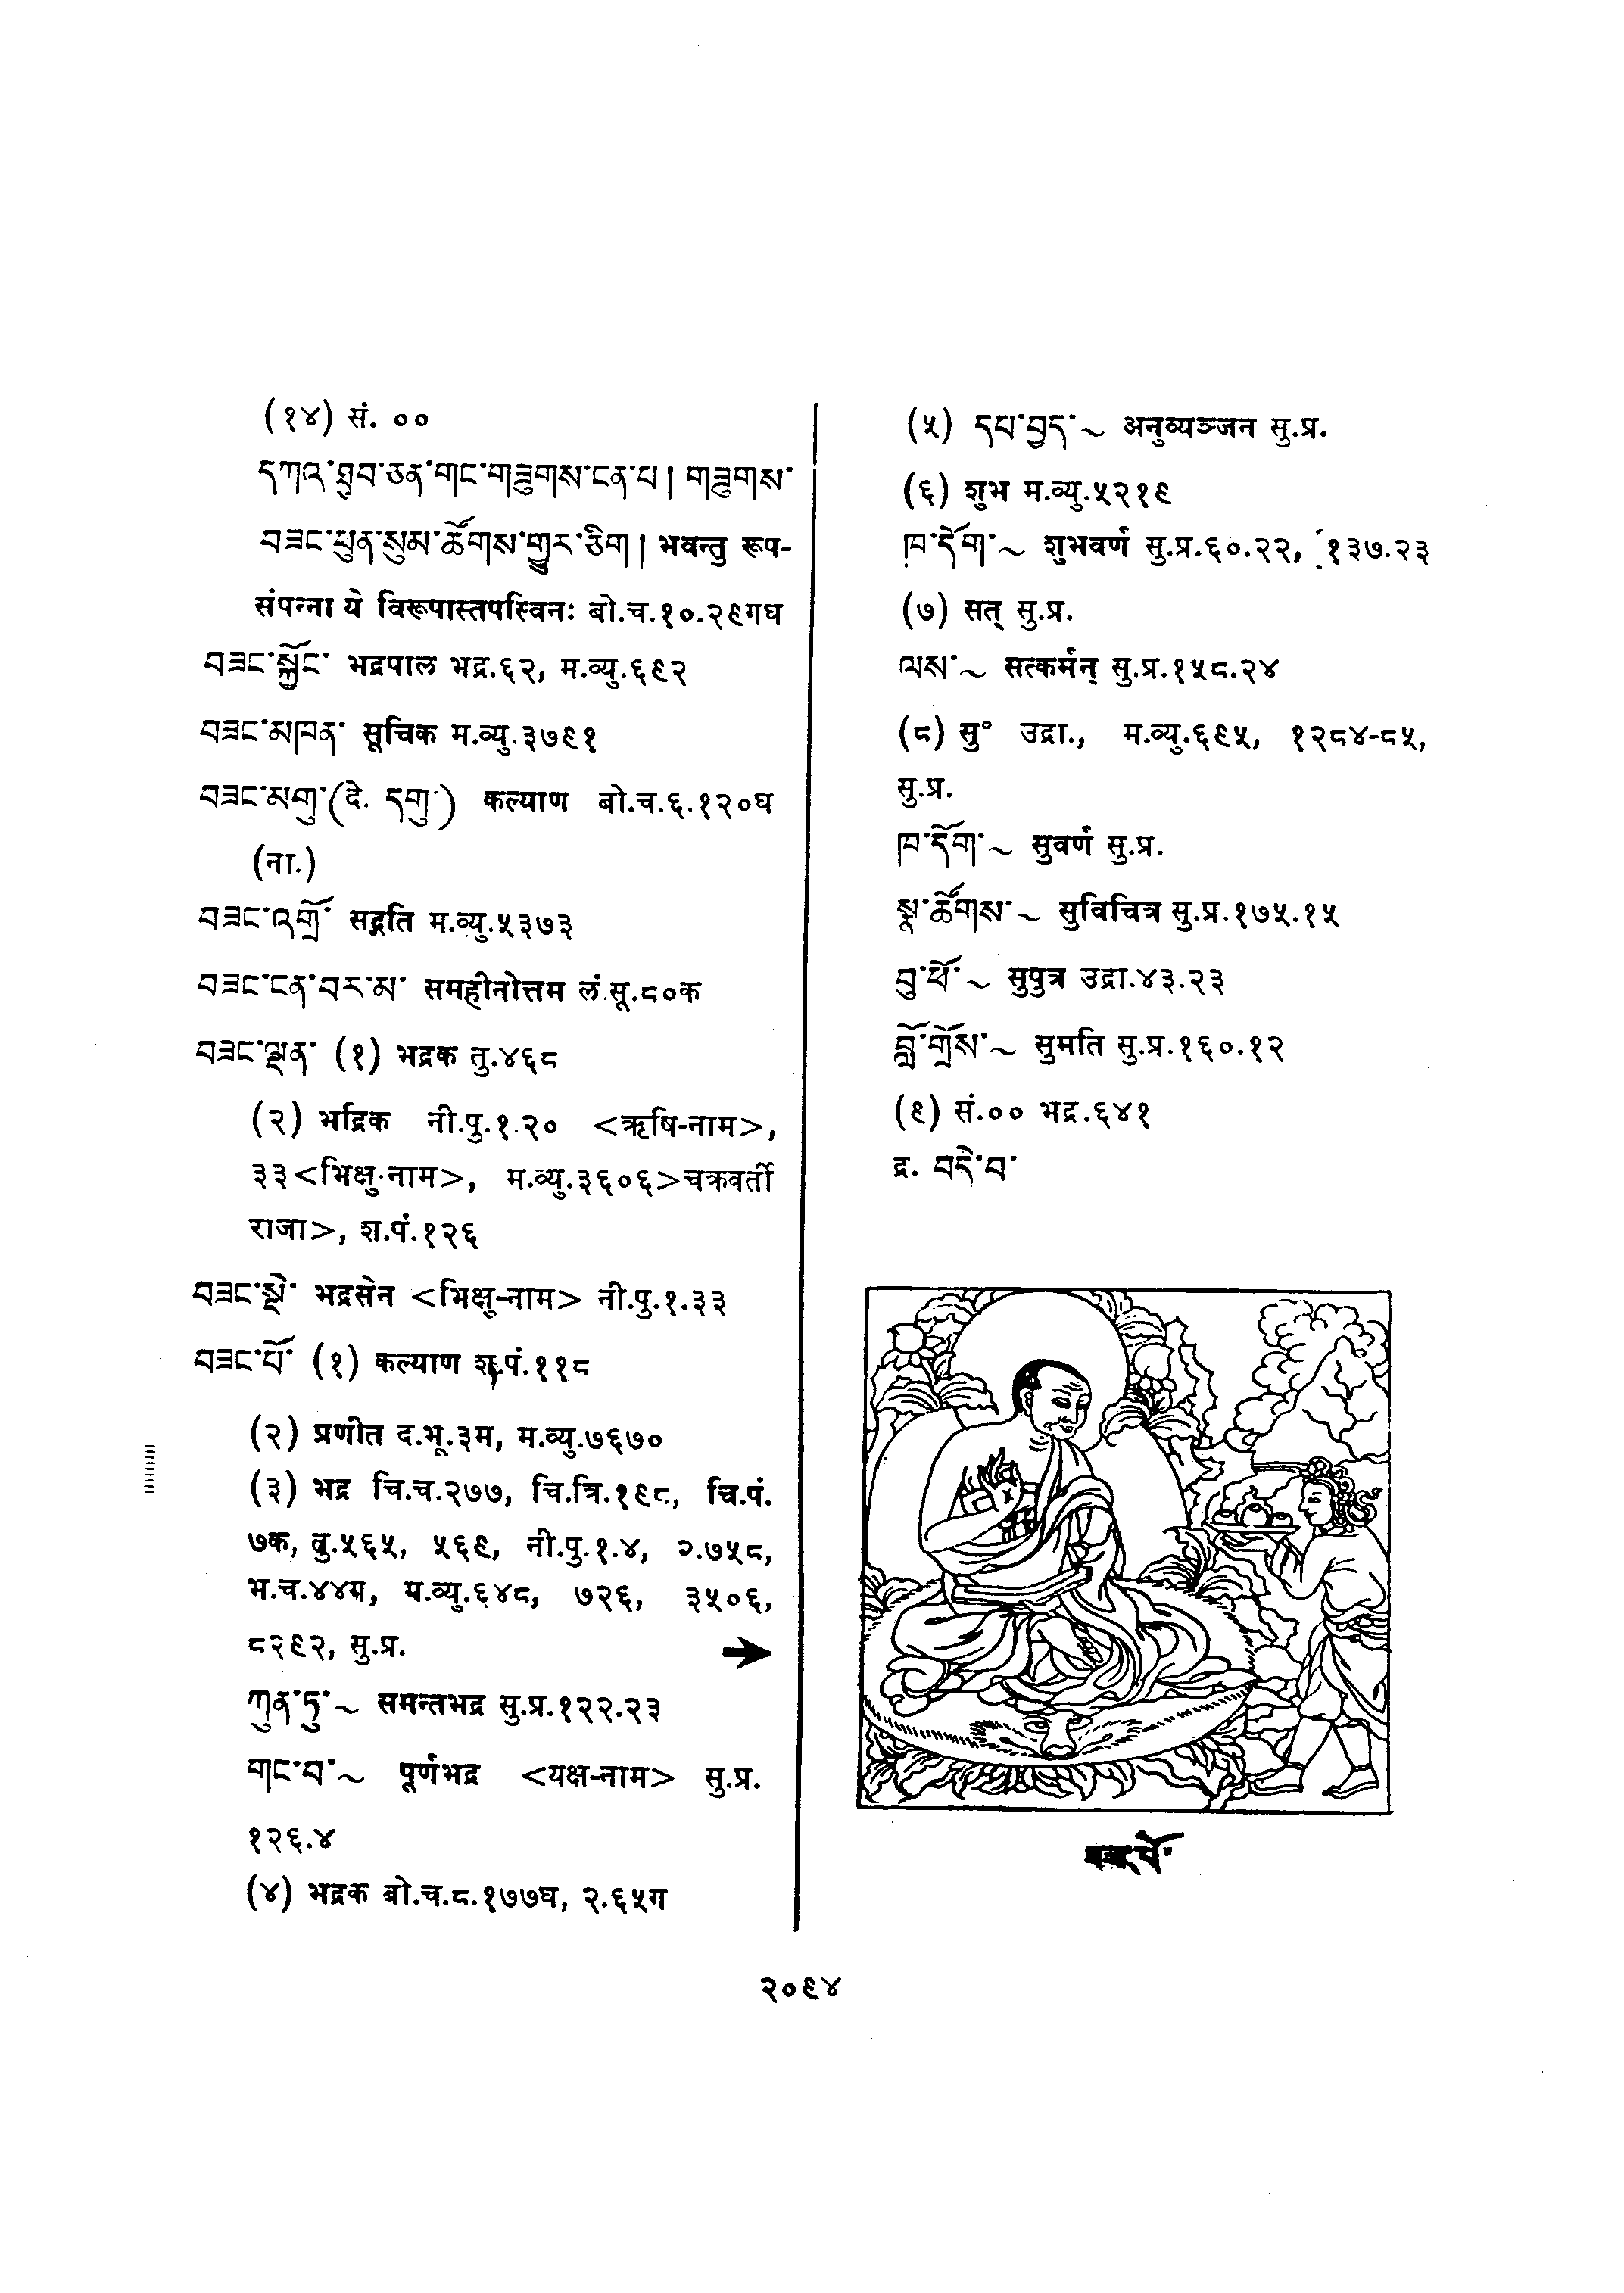 (१४) सं. ००
དཀའ་ཐུབ་ཅན་གང་གཟུགས་ངན་པ། གཟུགས་
བཟང་ཕུན་སུམ་ཚོགས་གྱུར་ཅིག། भवन्तु रूप-
संपन्ना ये विरूपास्तपस्विनः बो.च.१०.२९गघ
བཟང་སྐྱོང་ भद्रपाल भद्र.६२, म.व्यु.६९२
བཟང་མཁན་ सूचिक म.व्यु.३७९१
བཟང་མགུ་(दे. དགུ་) कल्याण बो.च.६.१२०घ
(ना.)
བཟང་འགྲོ་ सद्गति म.व्यु.५३७३
བཟང་ངན་བར་མ་ समहीनोत्तम लं.सू.८०क
བཟང་ལྡན་ (१) भद्रक तु.४६८
(२) भद्रिक नी.पु.१.२० <ऋषि-नाम>,
३३<भिक्षु-नाम>, म.व्यु.३६०६>चक्रवर्ती
राजा>, श.पं.१२६
བཟང་སྡེ་ भद्रसेन <भिक्षु-नाम> नी.पु.१.३३
བཟང་པོ་ (१) कल्याण श.पं.११८
(२) प्रणीत द.भू.३म, म.व्यु.७६७०
(३) भद्र चि.च.२७७, चि.त्रि.१९८, चि.पं.
७क, तु.५६५, ५६९, नी.पु.१.४, २.७५८,
भ.च.४४म, म.व्यु.६४८, ७२६, ३५०६,
८२९२, सु.प्र. ➔
ཀུན་ཏུ་~ समन्तभद्र सु.प्र.१२२.२३
གང་བ་~ पूर्णभद्र <यक्ष-नाम> सु.प्र.
१२६.४
(४) भद्रक बो.च.८.१७७घ, २.६५ग
(५) དཔེ་བྱད་~ अनुव्यञ्जन सु.प्र.
(६) शुभ म.व्यु.५२१९
ཁ་དོག་~ शुभवर्ण सु.प्र.६०.२२, १३७.२३
(७) सत् सु.प्र.
ལས་~ सत्कर्मन् सु.प्र.१५८.२४
(८) सु° उद्रा., म.व्यु.६९५, १२८४-८५,
सु.प्र.
ཁ་དོག་~ सुवर्ण सु.प्र.
སྣ་ཚོགས་~ सुविचित्र सु.प्र.१७५.१५
བུ་ཕོ་~ सुपुत्र उद्रा.४३.२३
བློ་གྲོས་~ सुमति सु.प्र.१६०.१२
(९) सं.०० भद्र.६४१
द्र. བདེ་བ་
२०९४